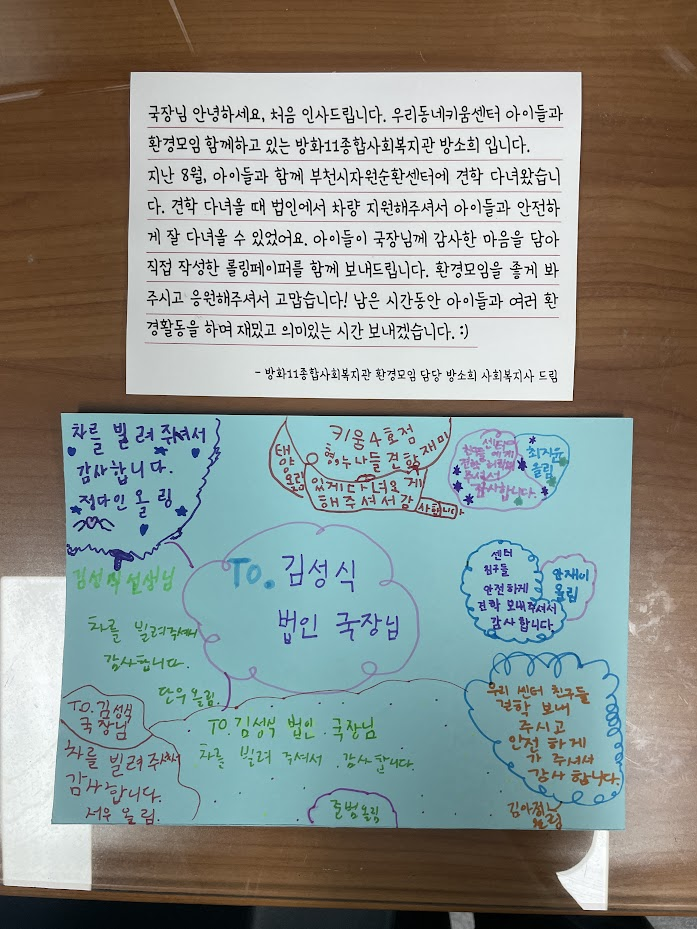 국장님 안녕하세요, 처음 인사드립니다. 우리동네키움센터 아이들과
환경모임 함께하고 있는 방화11종합사회복지관 방소희 입니다.
지난 8월, 아이들과 함께 부천시자원순환센터에 견학 다녀왔습니
다. 견학 다녀올 때 법인에서 차량 지원해주셔서 아이들과 안전하
게 잘 다녀올 수 있었어요. 아이들이 국장님께 감사한 마음을 담아
직접 작성한 롤링페이퍼를 함께 보내드립니다. 환경모임을 좋게 봐
주시고 응원해주셔서 고맙습니다! 남은 시간동안 아이들과 여러 환
경활동을 하며 재밌고 의미있는 시간 보내겠습니다. :)
- 방화11종합사회복지관 환경모임 담당 방소희 사회복지사 드림
차를 빌려 주셔서
감사합니다.
정다인 올림
키움4호점
형,누나들 견학 재미
있게 다녀오게
해주셔서 감
사합니다
태양
올림
센터
주셔서
감사합니다.
최지유
올림
To. 김성식
법인 국장님
센터
친구들
안전하게
견학 보내주셔서
감사합니다
안재이
올림
김성식 선생님
차를 빌려주셔서
감사합니다.
단우올림.
TO.김성식
국장님
차를 빌려 주셔서
감사
합니다.
서우 올림.
TO.김성식 법인.국장님
차를 빌려 주셔서 감사합니다.
준범올림
우리 센터 친구들
견학 보내
주시고
안전하게
가 주셔서
감사합니다.
올림